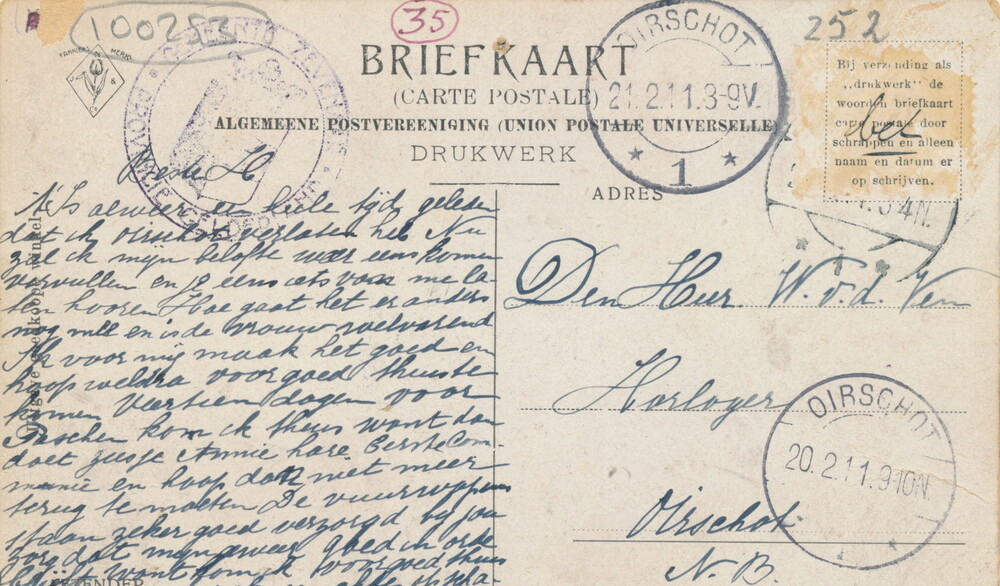 100253
35
252
FABRIEKS MERK
BRIEFKAART
(CARTE POSTALE)
ALGEMEENE POSTVEREENIGING (UNION POSTALE UNIVERSELLE)
DRUKWERK
ADRES
OIRSCHOT
21.2.11.8-9V.
1
Bij verzending als
„drukwerk” de
woorden briefkaart
carte postale door
schrappen en alleen
naam en datum er
op schrijven.
bel
4N.
GEMEENTE ZEVENAAR
PROVINCIE GELDERLAND
Beste H
't Is alweer een heele tijd geleden
dat ik Oirschot verlaten heb Nu
zal ik mijn belofte weer eens komen
vervullen en je eens iets van me la-
ten hooren Hoe gaat het er anders
nog mee en is de vrouw welvarend
Ik voor mij maak het goed en
hoop weldra voorgoed thuis te
komen Veertien dagen voor
Paschen kom ik thuis want dan
doet zusje Annie hare Eerste Com-
munie en hoop dan niet meer
terug te moeten De vuurwapens
staan zeker goed verzorgd bij jou
zorg dat mijn geweer goed in orde
blijft want kom ik voorgoed thuis
Den Heer W. v. d. Ven
Horloger
Oirschot
N.B.
OIRSCHOT
20.2.11.9-10N.
AFZENDER